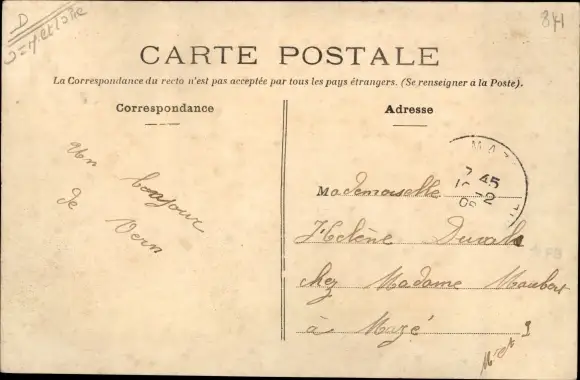 D
841
CARTE POSTALE
La Correspondance du recto n'est pas acceptée par tous les pays étrangers. (Se renseigner à la Poste).
Correspondance
Adresse
Un bonjour
de Vern
MAZ
7 45
12
Mademoiselle
Hélène Duval
chez Madame Maubert
à Mazé